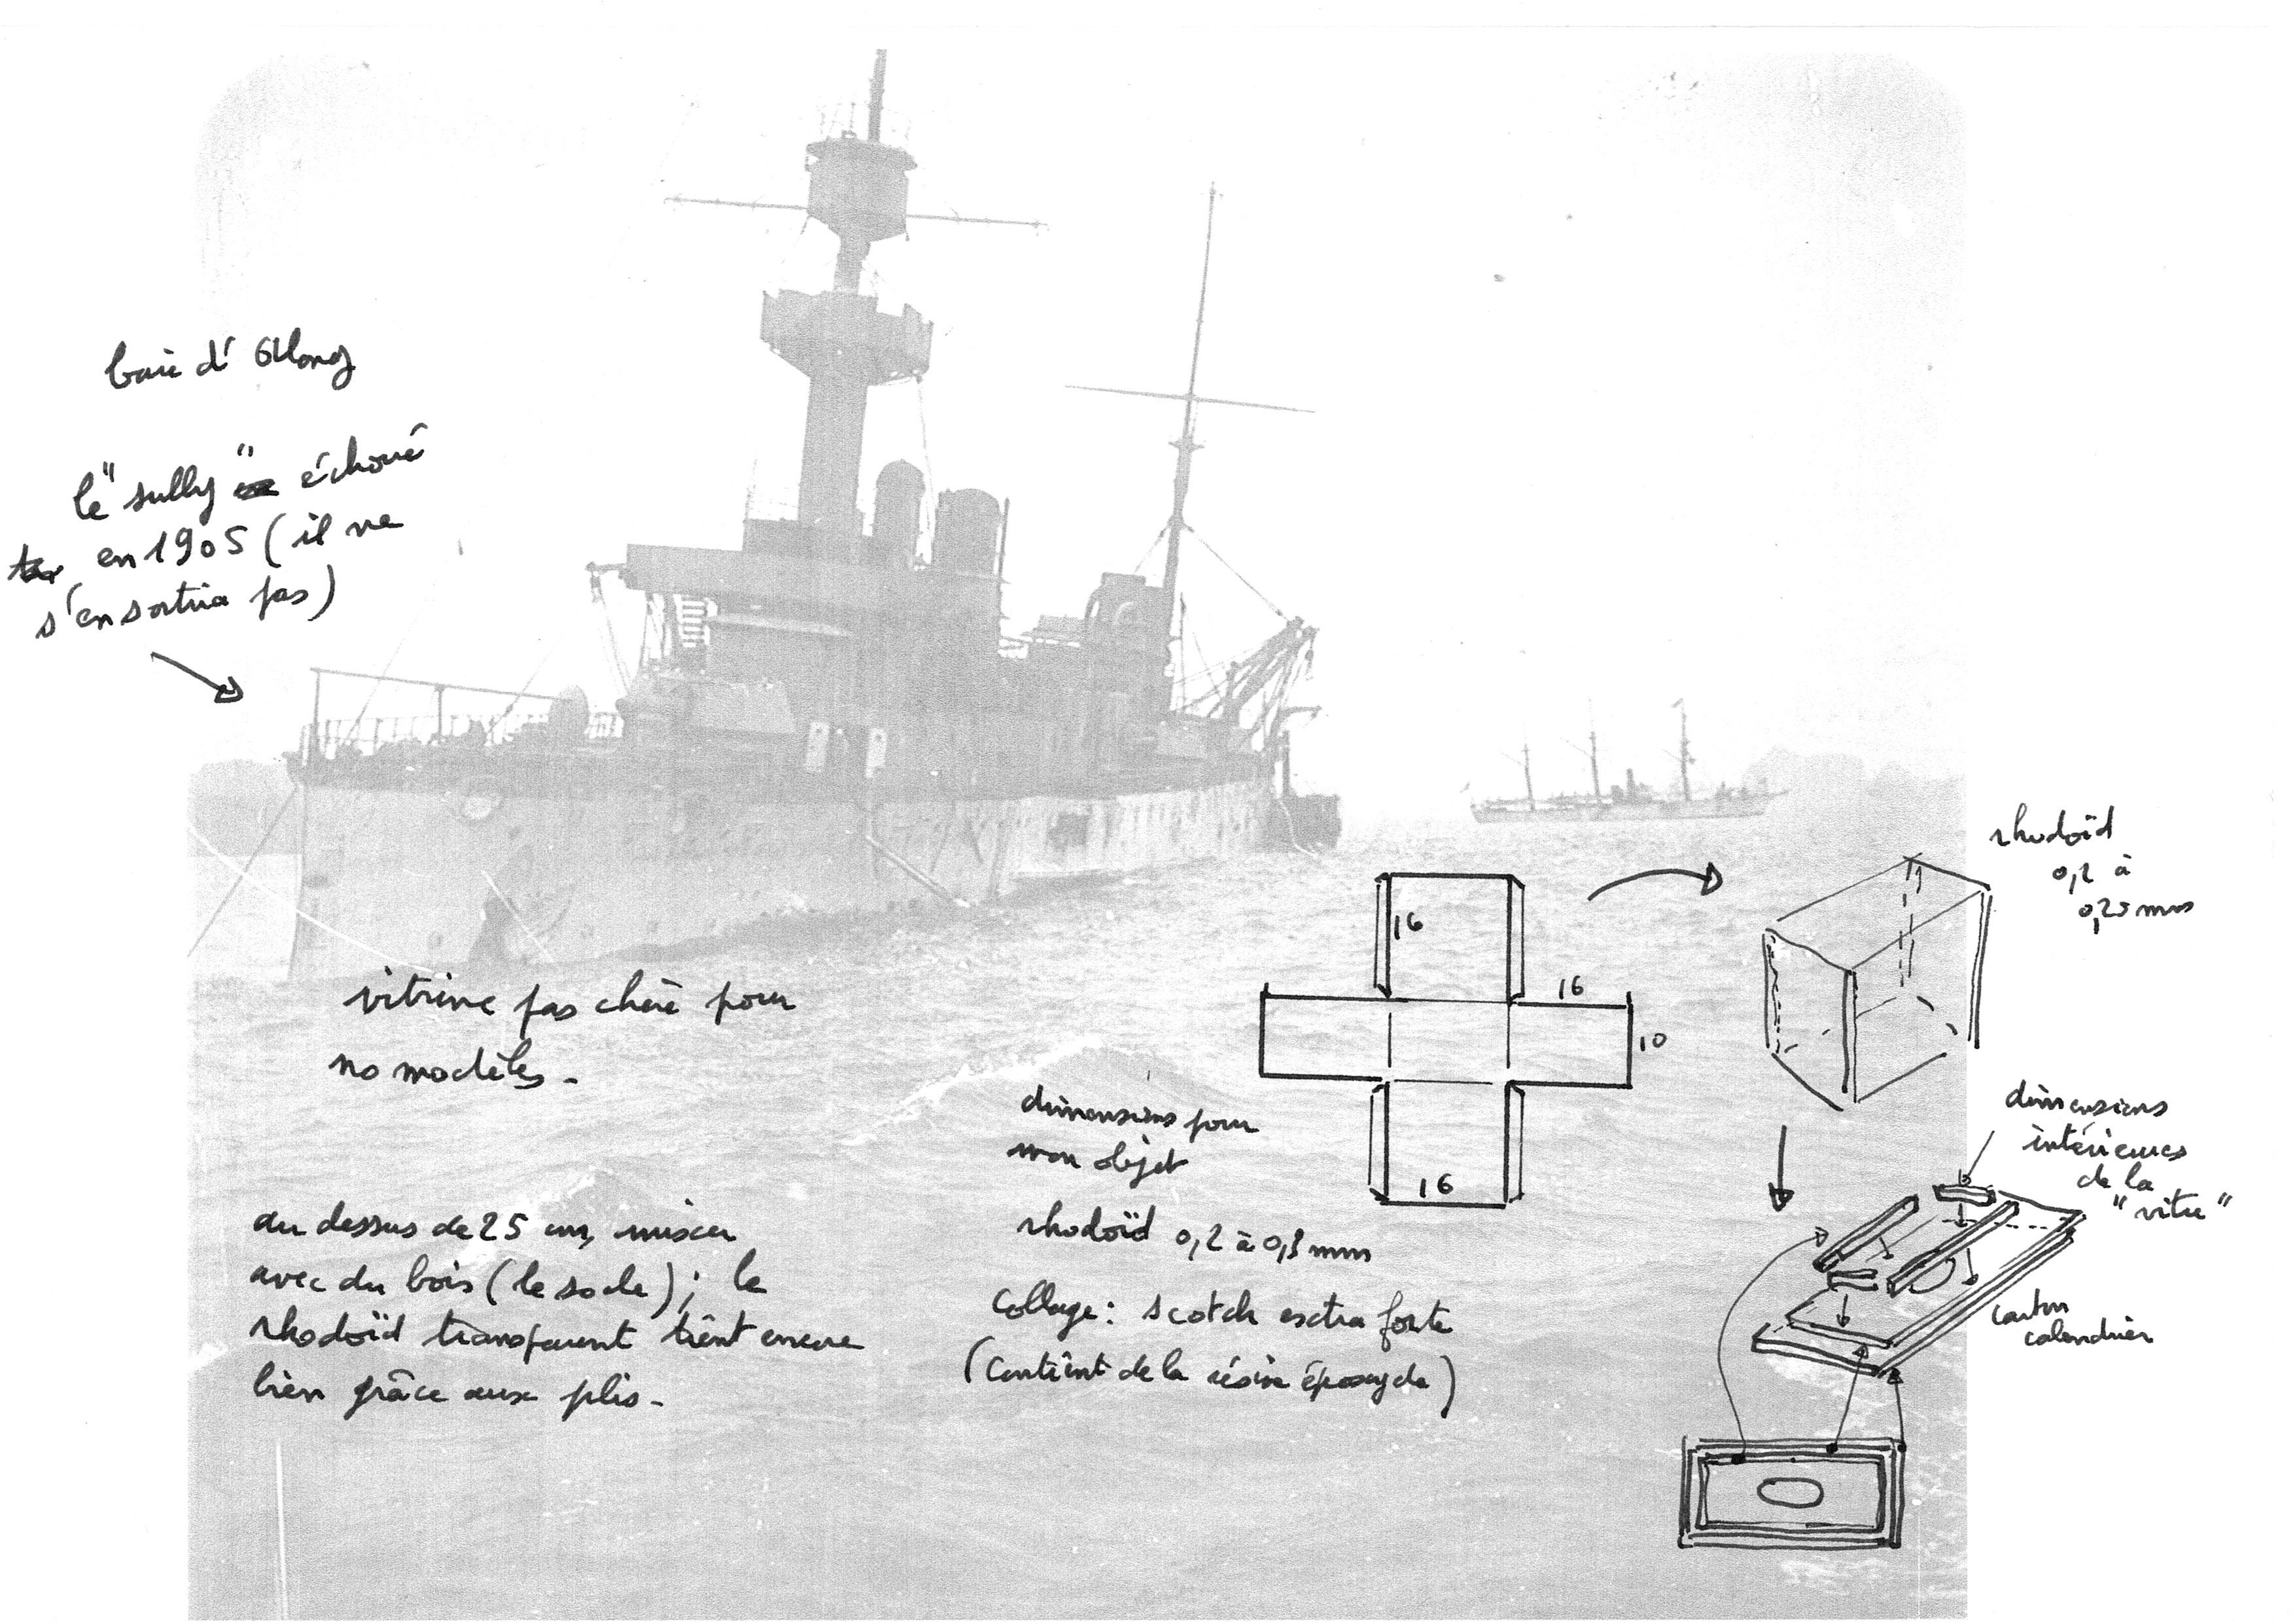 baie d'Along
le "sully" échoué
en 1905 (il ne
s'en sortira pas)
vitrine pas chère pour
no modèles.
au dessus de 25 cm, mixer
avec du bois (le socle) ; le
rhodoïd transparent tient encore
bien grâce aux plis.
16
16
10
16
dimensions pour
mon objet
rhodoïd 0,2 à 0,3 mm
Collage : scotch extra forte
(contient de la résine époxyde)
rhodoïd
0,2 à
0,25 mm
dimensions
intérieures
de la
"vitre"
carton
calendrier